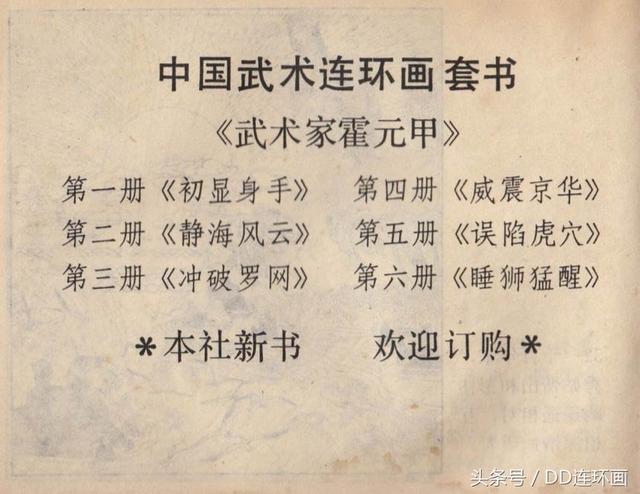 中国武术连环画套书
《武术家霍元甲》
第一册《初显身手》 第四册《威震京华》
第二册《静海风云》 第五册《误陷虎穴》
第三册《冲破罗网》 第六册《睡狮猛醒》
*本社新书 欢迎订购*
头条号 / DD连环画